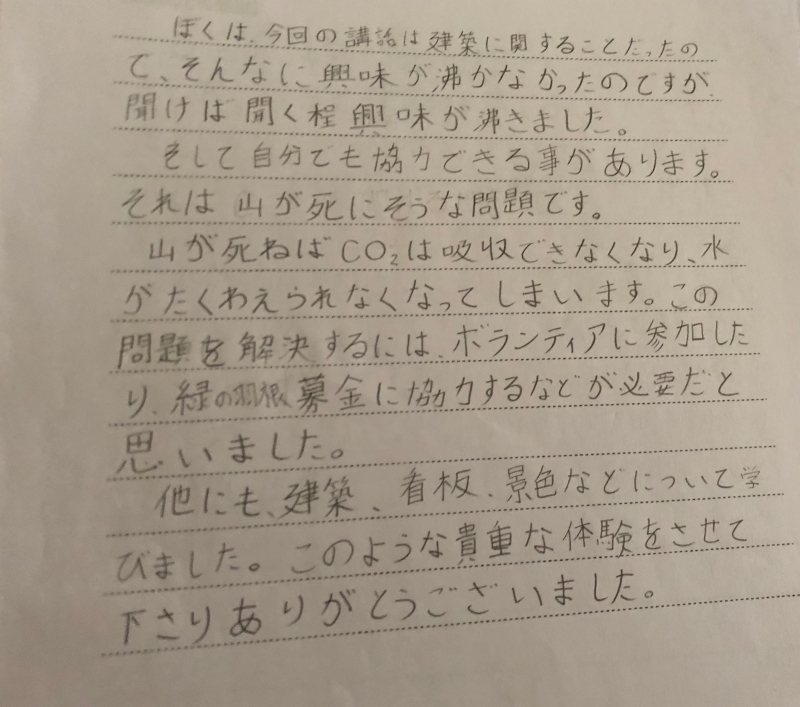 ぼくは、今回の講話は建築に関することだったの
で、そんなに興味が沸かなかったのですが、
聞けば聞く程興味が沸きました。
そして自分でも協力できる事があります。
それは山が死にそうな問題です。
山が死ねばCO₂は吸収できなくなり、水
がたくわえられなくなってしまいます。この
問題を解決するには、ボランティアに参加した
り、緑の羽根募金に協力するなどが必要だと
思いました。
他にも、建築、看板、景色などについて学
びました。このような貴重な体験をさせて
下さりありがとうございました。